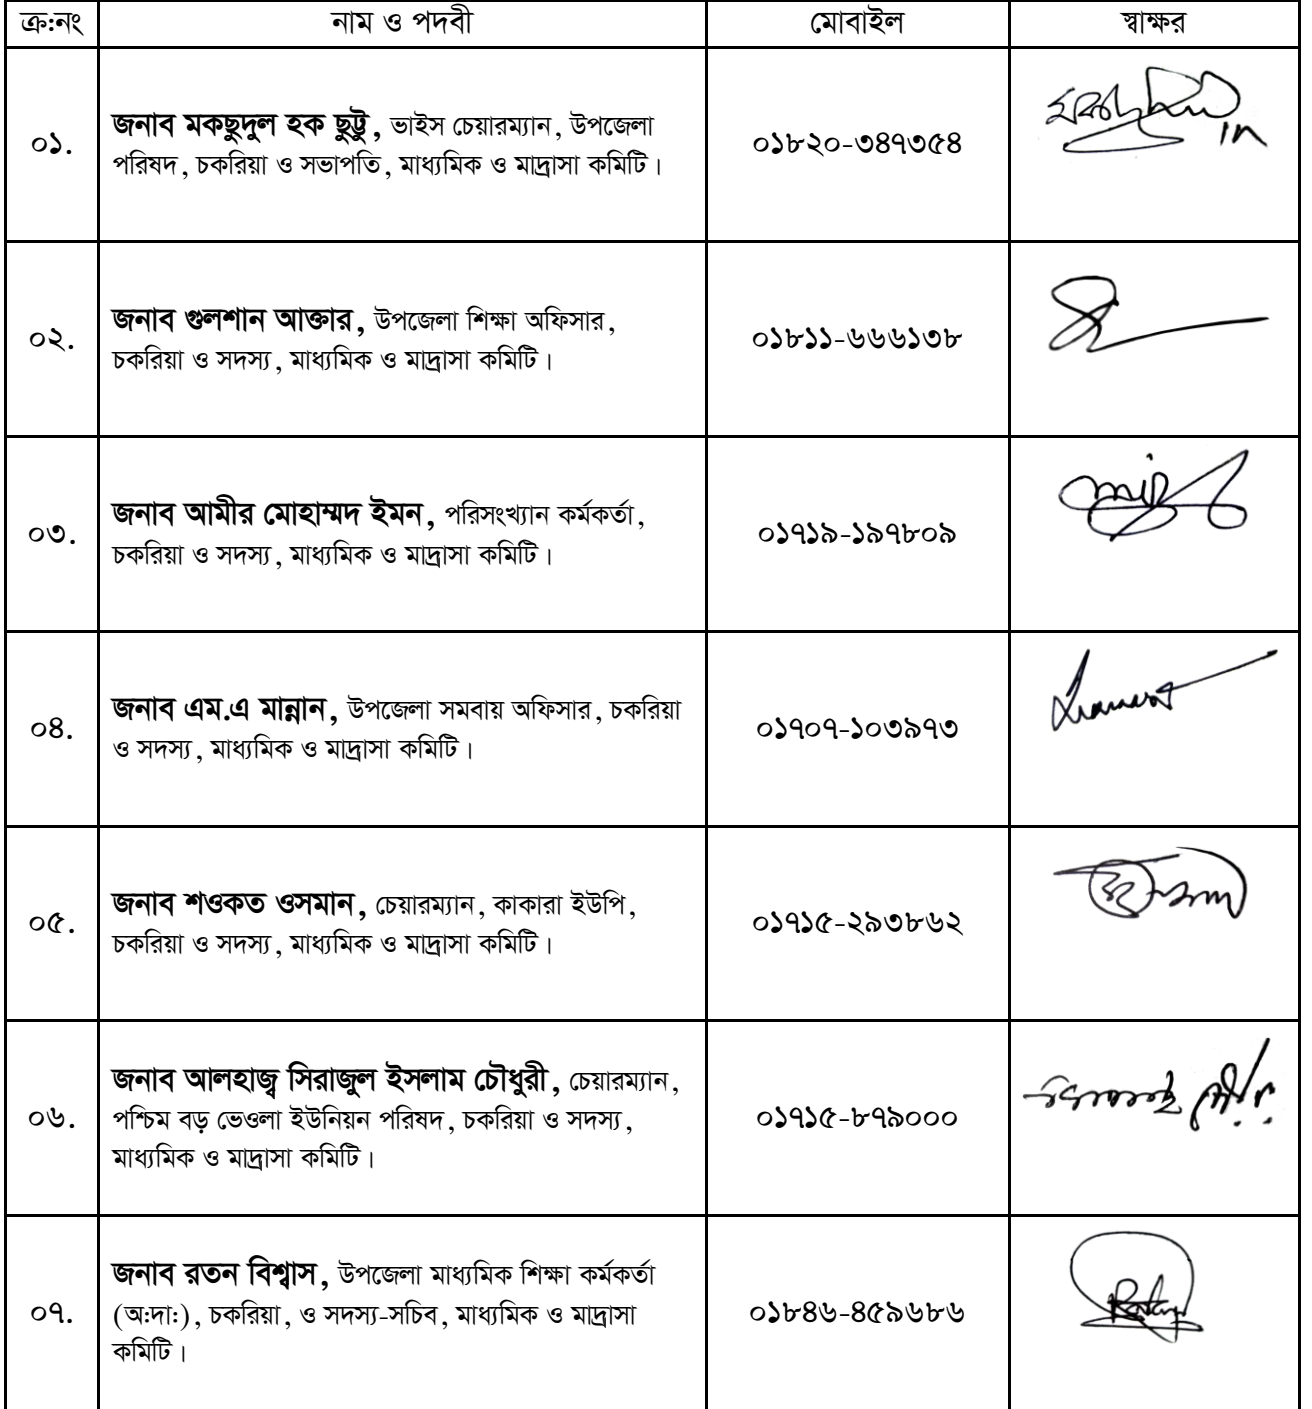 ক্র:নং নাম ও পদবী মোবাইল স্বাক্ষর
০১. জনাব মকছুদুল হক ছুট্টু, ভাইস চেয়ারম্যান, উপজেলা
পরিষদ, চকরিয়া ও সভাপতি, মাধ্যমিক ও মাদ্রাসা কমিটি।
০১৮২০-৩৪৭৩৫৪
০২. জনাব গুলশান আক্তার, উপজেলা শিক্ষা অফিসার,
চকরিয়া ও সদস্য, মাধ্যমিক ও মাদ্রাসা কমিটি।
০১৮১১-৬৬৬১৩৮
০৩. জনাব আমীর মোহাম্মদ ইমন, পরিসংখ্যান কর্মকর্তা,
চকরিয়া ও সদস্য, মাধ্যমিক ও মাদ্রাসা কমিটি।
০১৭১৯-১৯৭৮০৯
০৪. জনাব এম.এ মান্নান, উপজেলা সমবায় অফিসার, চকরিয়া
ও সদস্য, মাধ্যমিক ও মাদ্রাসা কমিটি।
০১৭০৭-১০৩৯৭৩
০৫. জনাব শওকত ওসমান, চেয়ারম্যান, কাকারা ইউপি,
চকরিয়া ও সদস্য, মাধ্যমিক ও মাদ্রাসা কমিটি।
০১৭১৫-২৯৩৮৬২
০৬. জনাব আলহাজ্ব সিরাজুল ইসলাম চৌধুরী, চেয়ারম্যান,
পশ্চিম বড় ভেওলা ইউনিয়ন পরিষদ, চকরিয়া ও সদস্য,
মাধ্যমিক ও মাদ্রাসা কমিটি।
০১৭১৫-৮৭৯০০০
০৭. জনাব রতন বিশ্বাস, উপজেলা মাধ্যমিক শিক্ষা কর্মকর্তা
(অ:দা:), চকরিয়া, ও সদস্য-সচিব, মাধ্যমিক ও মাদ্রাসা
কমিটি।
০১৮৪৬-৪৫৯৬৮৬